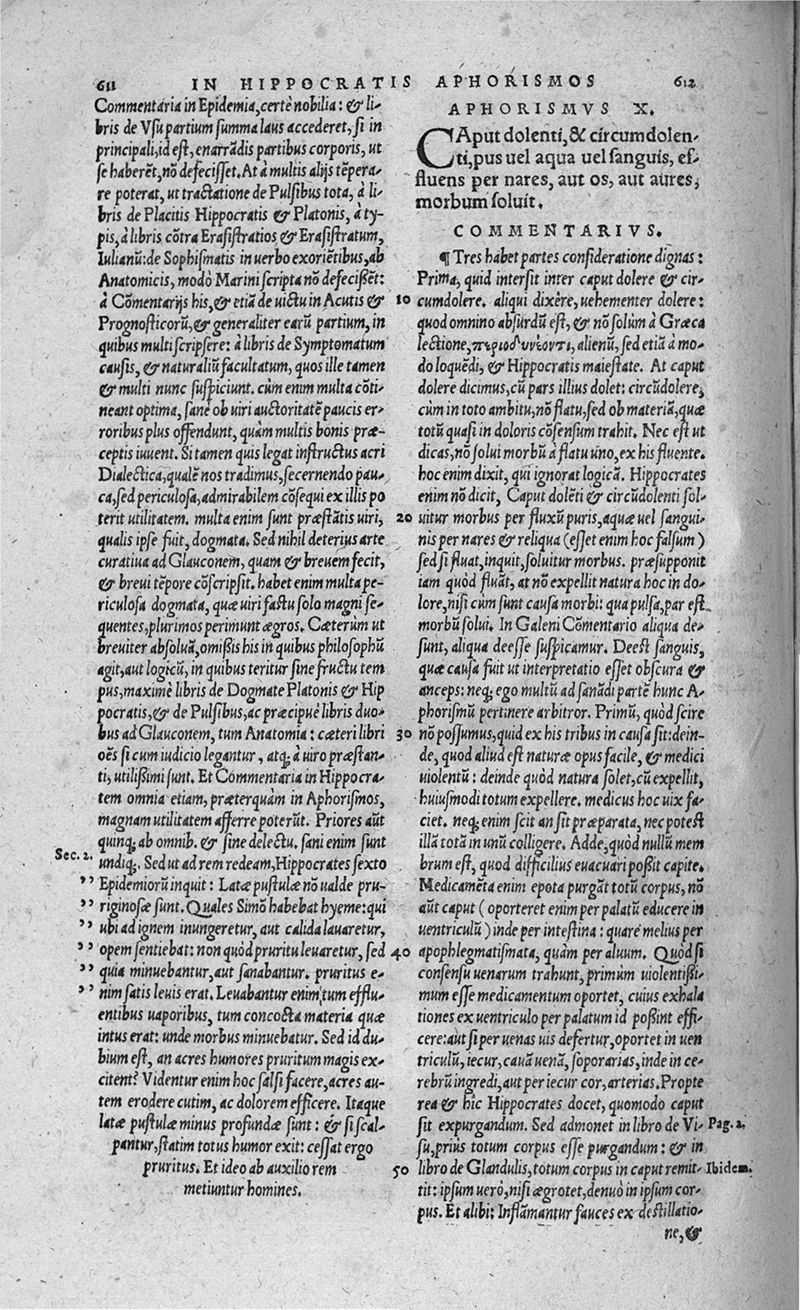 611 IN HIPPOCRATIS APHORISMOS 612
Commentaria in Epidemia, certè nobilia: & li-
bris de Vsu partium summa laus accederet, si in
principali, id est, enarrãdis partibus corporis, ut
se haberẽt, nõ defecisset. At à multis alijs tẽpera-
re poterat, ut tractatione de Pulsibus tota, à li-
bris de Placitis Hippocratis & Platonis, à ty-
pis, à libris cõtra Erasistratios & Erasistratum,
Iulianũ: de Sophismatis in uerbo exoriẽtibus, ab
Anatomicis, modò Marini scripta nõ defecissẽt:
à Cõmentarijs his, & etiã de uictu in Acutis &
Prognosticorũ, & generaliter earũ partium, in
quibus multi scripsere: à libris de Symptomatum
causis, & naturaliũ facultatum, quos ille tamen
& multi nunc suspiciunt. cùm enim multa cõti-
neant optima, sanè ob uiri auctoritatẽ paucis er-
roribus plus offendunt, quàm multis bonis præ-
ceptis iuuent. Si tamen quis legat instructus acri
Dialectica, qualẽ nos tradimus, secernendo pau-
ca, sed periculosa, admirabilem cõsequi ex illis po
terit utilitatem. multa enim sunt præstãtis uiri,
qualis ipse fuit, dogmata. Sed nihil deterius arte
curatiua ad Glauconem, quam & breuem fecit,
& breui tẽpore cõscripsit. habet enim multa pe-
riculosa dogmata, quæ uiri factu solo magni se-
quentes, plurimos perimunt ægros. Cæterùm ut
breuiter absoluã, omißis his in quibus philosophũ
agit, aut logicũ, in quibus teritur sine fructu tem
pus, maximè libris de Dogmate Platonis & Hip
pocratis, & de Pulsibus, ac præcipuè libris duo-
bus ad Glauconem, tum Anatomia: cæteri libri
oẽs si cum iudicio legantur, atq; à uiro præstan-
ti, utilißimi sunt. Et Commentaria in Hippocra-
tem omnia etiam, præterquàm in Aphorismos,
magnam utilitatem afferre poterũt. Priores aũt
quinq; ab omnib. & sine delectu. sani enim sunt
Sec. 2. undiq;. Sed ut ad rem redeam, Hippocrates sexto
” Epidemiorũ inquit: Latæ pustulæ nõ ualde pru-
” riginosæ sunt. Quales Simõ habebat hyeme: qui
” ubi ad ignem inungeretur, aut calida lauaretur,
” opem sentiebat: non quòd pruritu leuaretur, sed
” quia minuebantur, aut sanabantur. pruritus e-
” nim satis leuis erat. Leuabantur enim tum efflu-
entibus uaporibus, tum concocta materia quæ
intus erat: unde morbus minuebatur. Sed id du-
bium est, an acres humores pruritum magis ex-
citent? Videntur enim hoc salsi facere, acres au-
tem erodere cutim, ac dolorem efficere. Itaque
latæ pustulæ minus profundæ sunt: & si scal-
pantur, statim totus humor exit: cessat ergo
pruritus. Et ideo ab auxilio rem
metiuntur homines.
APHORISMVS X.
CAput dolenti, & circumdolen-
ti, pus uel aqua uel sanguis, ef-
fluens per nares, aut os, aut aures,
morbum soluit.
COMMENTARIVS.
¶ Tres habet partes consideratione dignas:
Prima, quid intersit inter caput dolere & cir-
10 cumdolere. aliqui dixêre, uehementer dolere:
quod omnino absurdũ est, & nõ solùm à Græca
lectione, περιοδυνέοντι, alienũ, sed etiã à mo-
do loquẽdi, & Hippocratis maiestate. At caput
dolere dicimus, cũ pars illius dolet: circũdolere,
cùm in toto ambitu, nõ flatu, sed ob materiã, quæ
totũ quasi in doloris cõsensum trahit. Nec est ut
dicas, nõ solui morbũ à flatu uno, ex his fluente.
hoc enim dixit, qui ignorat logicã. Hippocrates
enim nõ dicit, Caput dolẽti & circũdolenti sol-
20 uitur morbus per fluxũ puris, aquæ uel sangui-
nis per nares & reliqua (esset enim hoc falsum)
sed si fluat, inquit, soluitur morbus. præsupponit
iam quòd fluãt, at nõ expellit natura hoc in do-
lore, nisi cùm sunt causa morbi: qua pulsa, par est
morbũ solui. In Galeni Cõmentario aliqua de-
sunt, aliqua deesse suspicamur. Deest sanguis,
quæ causa fuit ut interpretatio esset obscura &
anceps: neq; ego multũ ad sanãdi partẽ hunc A-
phorismũ pertinere arbitror. Primũ, quòd scire
30 nõ possumus, quid ex his tribus in causa sit: dein-
de, quod aliud est naturæ opus facile, & medici
uiolentũ: deinde quòd natura solet, cũ expellit,
huiusmodi totum expellere. medicus hoc uix fa-
ciet. neq; enim scit an sit præparata, nec potest
illã totã in unũ colligere. Adde, quòd nullũ mem
brum est, quod difficilius euacuari poßit capite.
Medicamẽta enim epota purgãt totũ corpus, nõ
aũt caput (oporteret enim per palatũ educere in
uentriculũ) inde per intestina: quare melius per
40 apophlegmatismata, quàm per aluum. Quòd si
consensu uenarum trahunt, primùm uiolentißi-
mum esse medicamentum oportet, cuius exhala
tiones ex uentriculo per palatum id poßint effi-
cere: aut si per uenas uis defertur, oportet in uen
triculũ, iecur, cauã uenã, soporarias, inde in ce-
rebrũ ingredi, aut per iecur cor, arterias. Propte
rea & hic Hippocrates docet, quomodo caput
sit expurgandum. Sed admonet in libro de Vi- Pag. 2.
su, priùs totum corpus esse purgandum: & in
50 libro de Glandulis, totum corpus in caput remit- Ibidem.
tit: ipsum uerò, nisi ægrotet, denuò in ipsum cor-
pus. Et alibi: Inflãmantur fauces ex destillatio-
ne, &